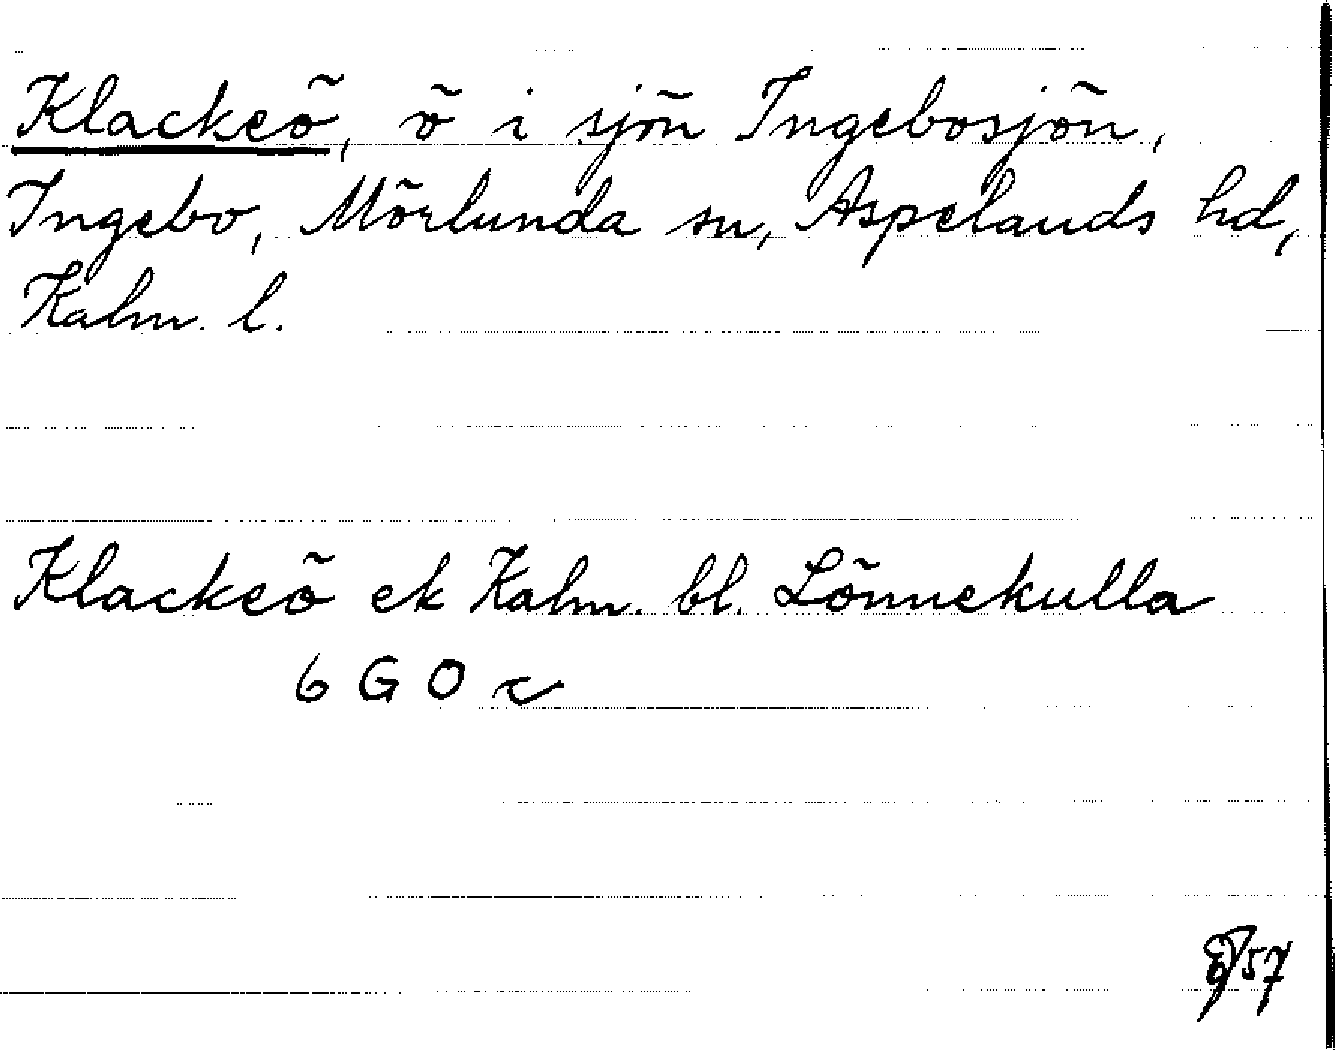 Klackeö, ö i sjön Ingebosjön,
Ingebo, Mörlunda sn, Aspelands hd,
Kalm. l.
Klackeö ek Kalm. bl. Lönnekulla
6 G O c
57